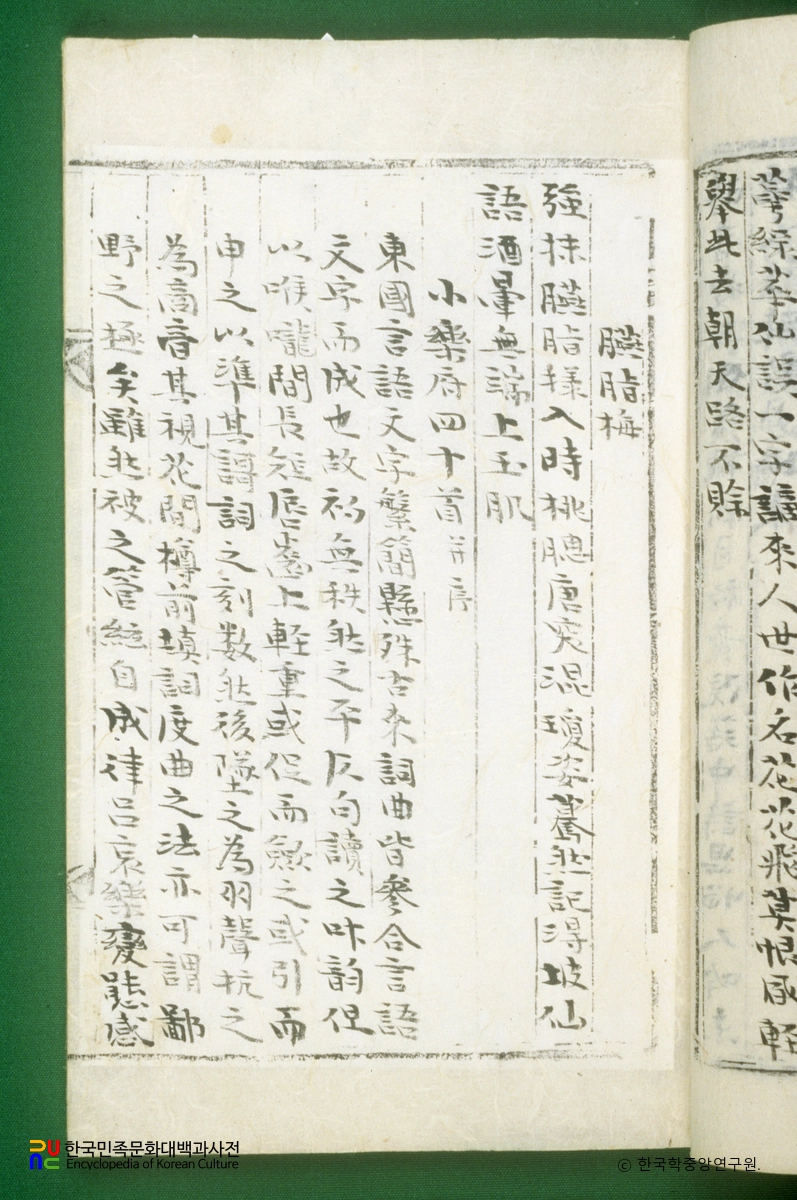 蕚綠華仙誤一字謫來人世作名花花飛莫恨風輕
擧此去朝天路不賖
臙脂梅
强抹臙脂様入時桃腮唐突混瓊姿驀然記得坡仙
語酒暈無端上玉肌
小樂府四十首並序
東國言語文字繁簡懸殊古来詞曲皆參合言語
文字而成也故初無秩然之平仄句讀之叶韵但
以喉嚨間長短唇齒上輕重或促而歛之或引而
申之以準其謌詞之刻数然後墜之為羽聲抗之
為商音其視花間樽前填詞度曲之法亦可謂鄙
野之極矣雖然被之管絃自成律呂哀樂變態感
한국민족문화대백과사전
Encyclopedia of Korean Culture
ⓒ 한국학중앙연구원.